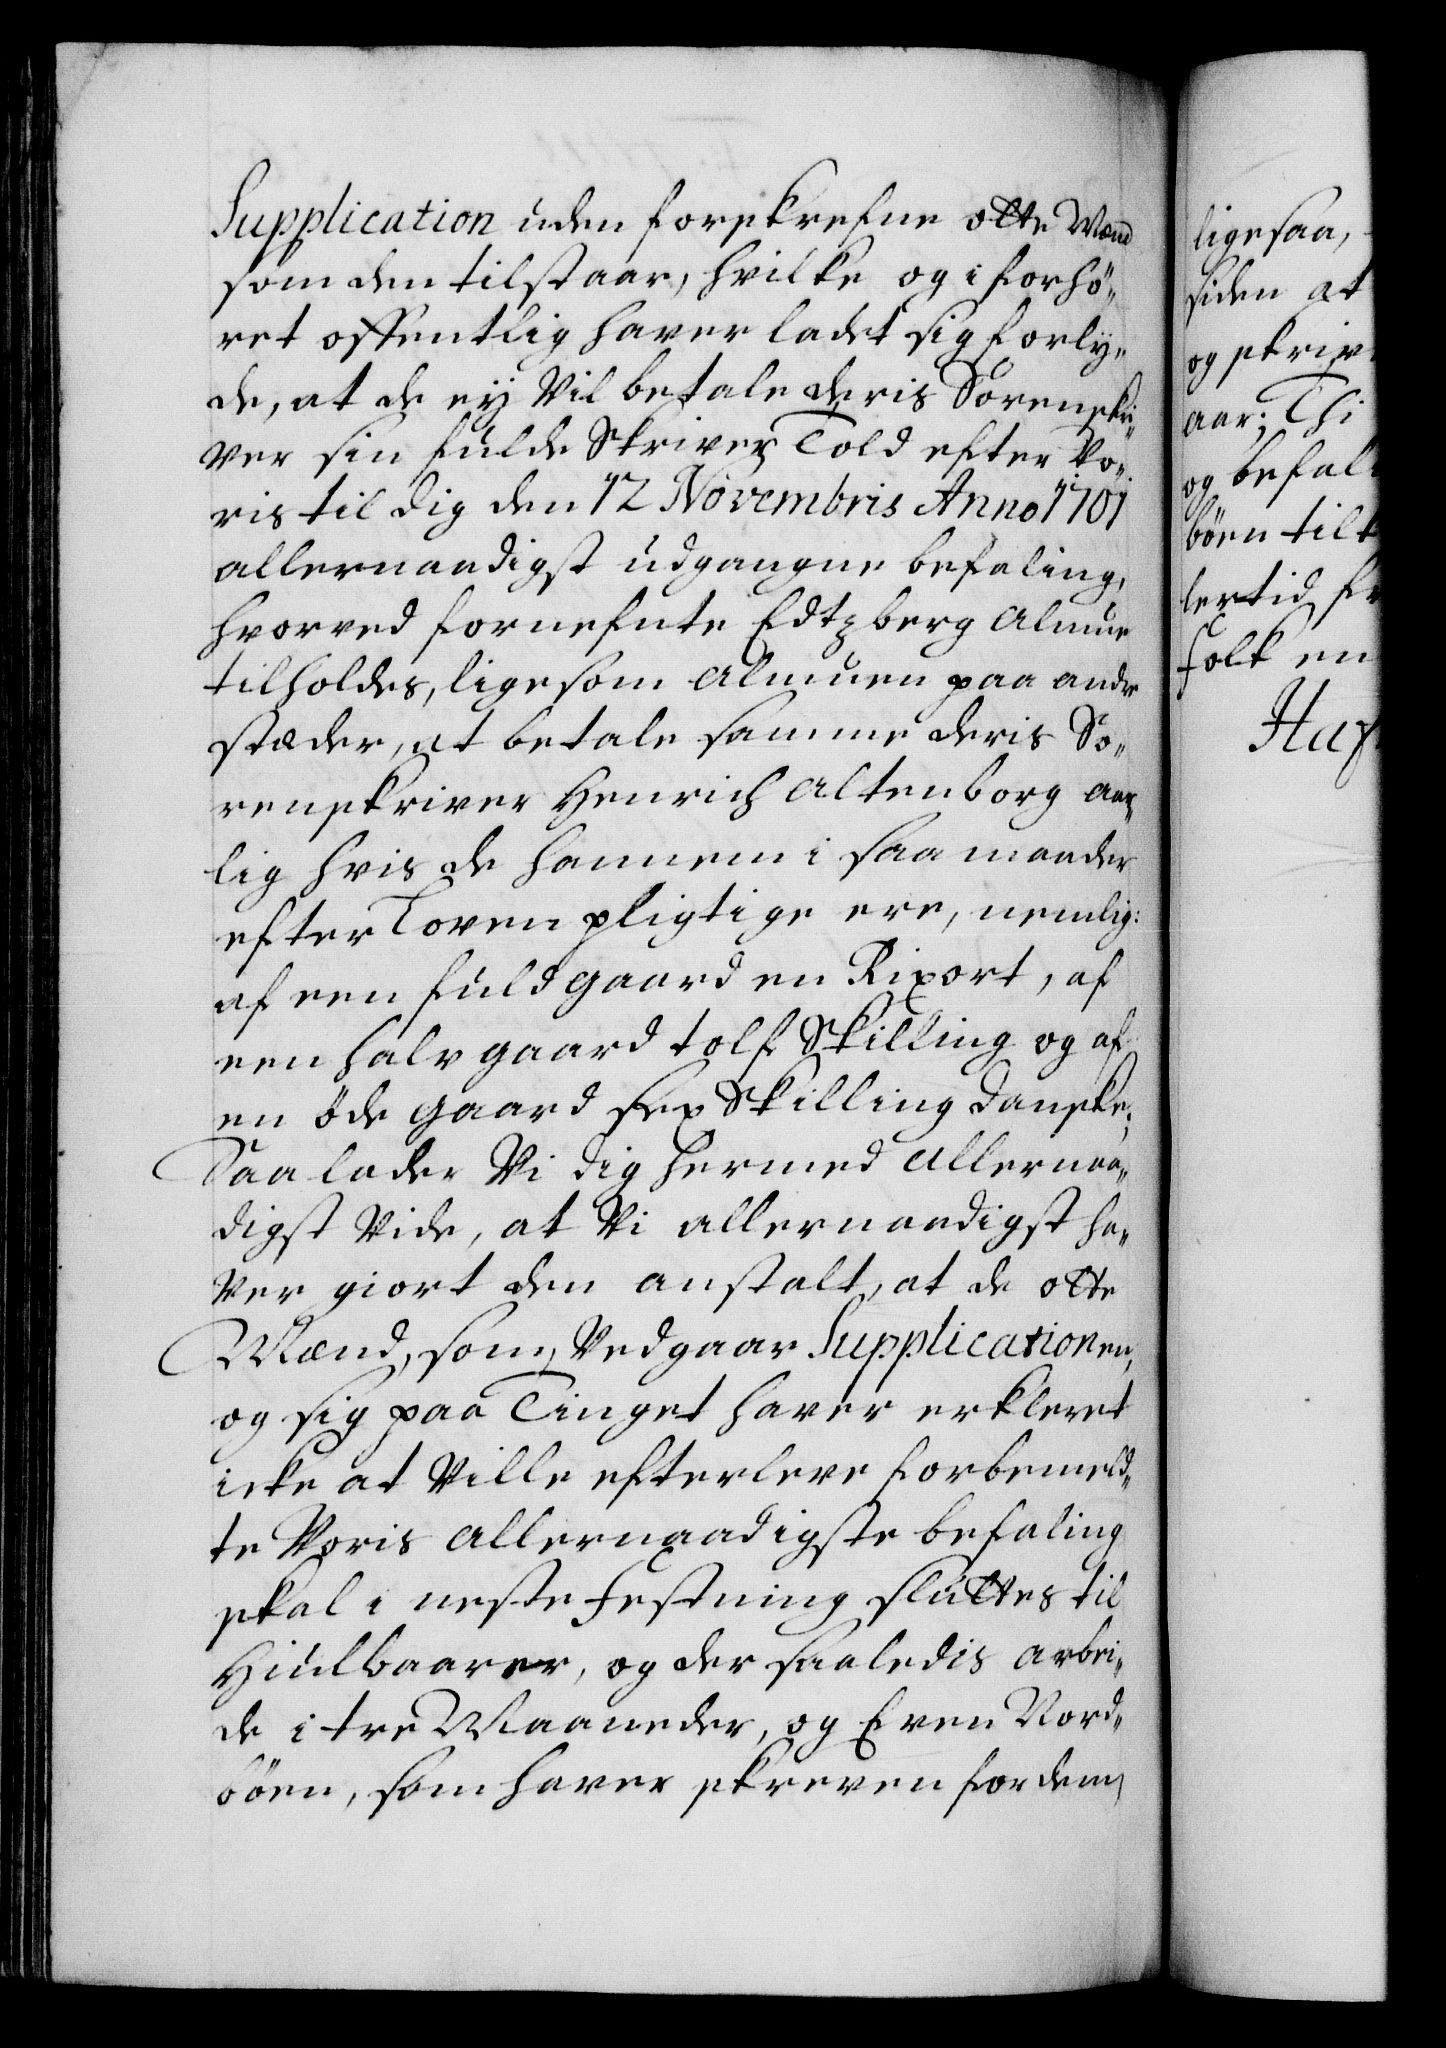 Supplication uden forskrefne otte Mænd
som den tilstaar, hvilke og i forhö„
ret offentlig haver ladet sig forly„
de, at de eÿ Vil betale deris Sorenskri„
ver sin fulde Skriver Told efter Vo„
ris til dig den 12 Novembris Anno 1701
allernaadigst udgangne befaling,
hvorved fornefnte Edtzberg Almue
tilholdes, ligesom Almuen paa andre
stæder, at betale samme deris So„
renskriver Henrich Altenborg aar„
lig hvis de hannem i saa maader
efter Loven pligtige ere, nemlig:
af een fuld gaard en Rixort, af
een halv gaard tolf Skilling og af
en öde gaard sex Skilling danske;
Saa lader Vi dig hermed Allernaa„
digst Vide, at Vi allernaadigst ha„
ver giort den anstalt, at de otte
Mænd, som Vedgaar Supplicationen,
og sig paa Tinget haver erkleret
icke at Ville efterleve forbemeld„
te Voris allernaadigste befaling
skal i neste Festning sluttes til
Hiulbaarer, og der saaledis arbei„
de i tre Maaneder, og Even Nord„
böen, som haver skreven for dem
ligesaa,
siden at
og skriv
aar; Thi
og befal
böen tilt
lertid fr
folk en
Haf